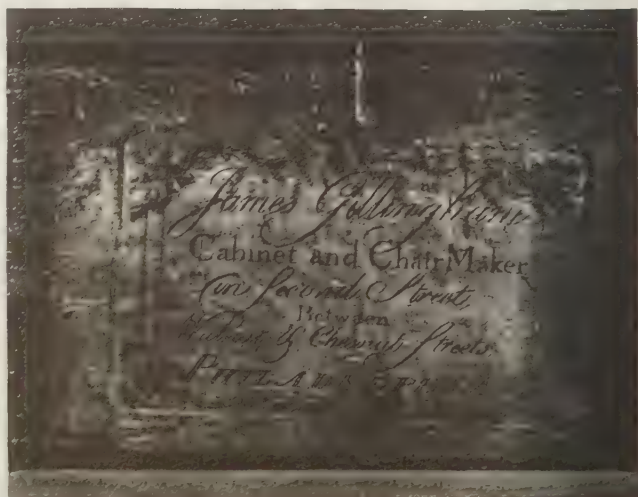 James Gillingham
Cabinet and Chair Maker
in Second Street,
Between
Walnut & Chesnut Streets.
PHILADELPHIA